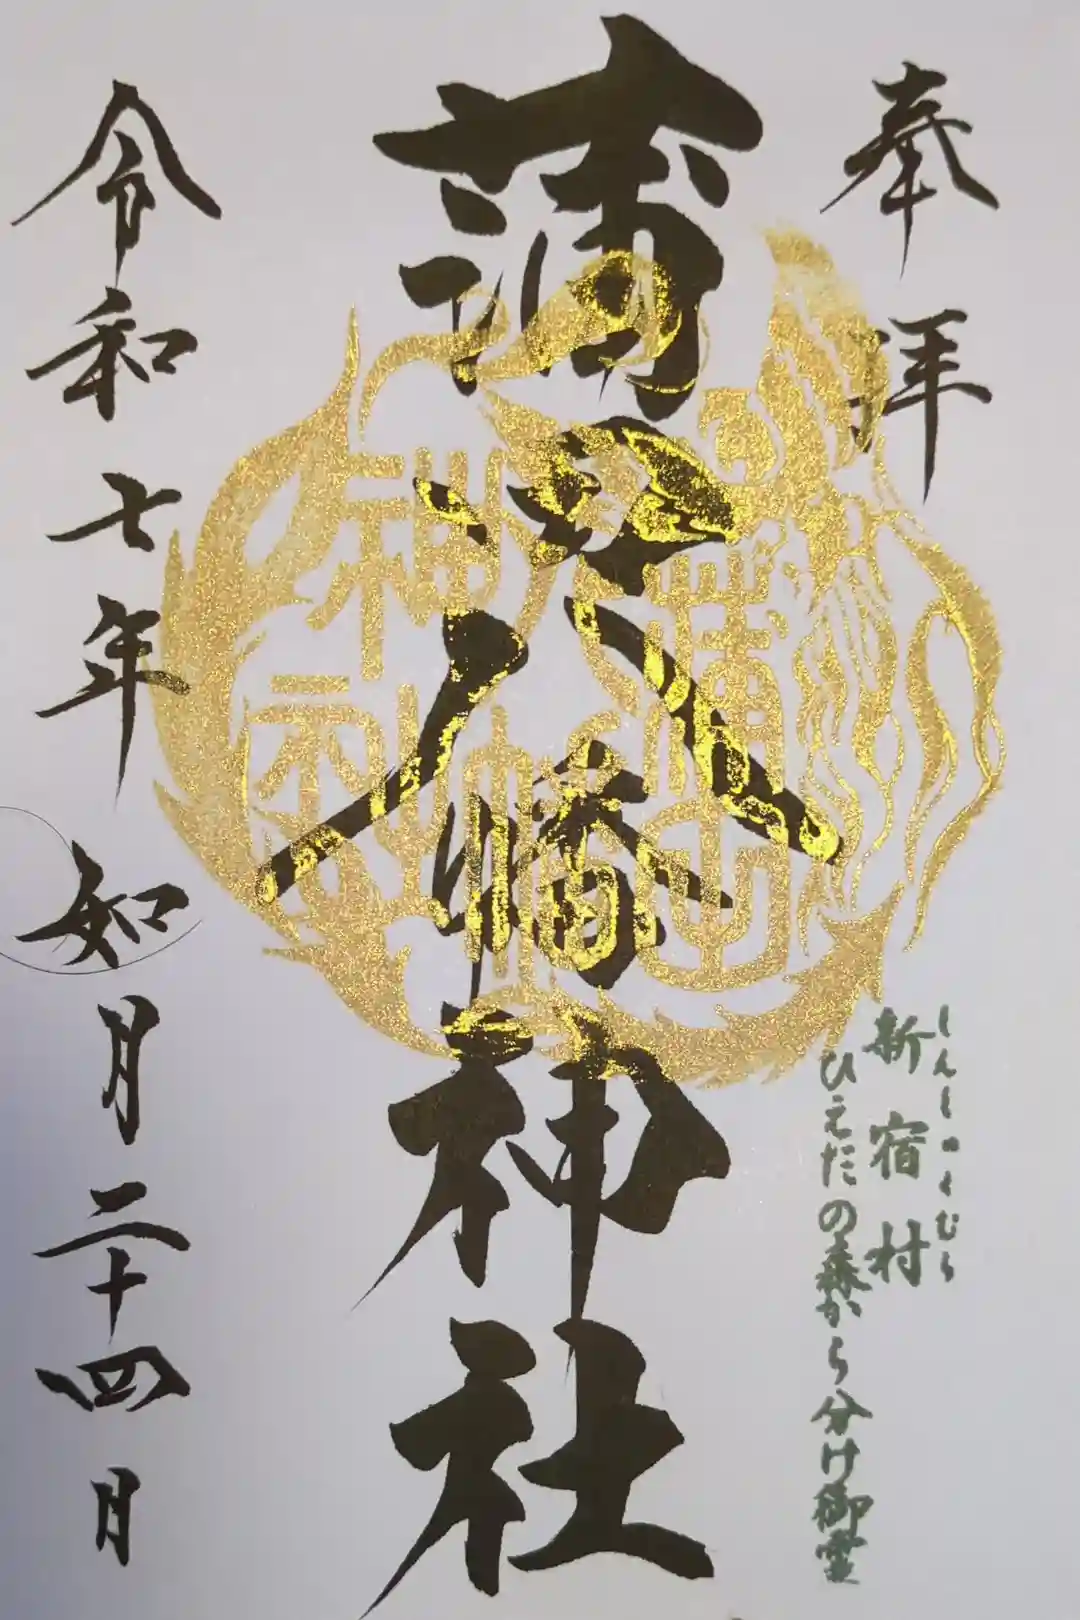 奉拝
しんしゅくむら
新宿村
ひえだの森から分け御霊
蒲田八幡神社
令和七年如月二十四日